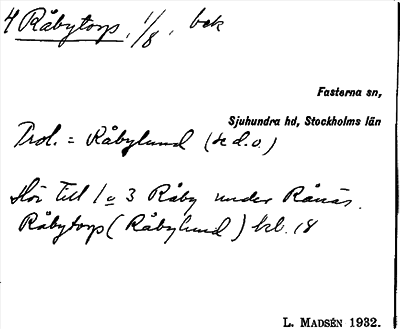 4 Råbytorp, 1/8, bek
Fasterna sn,
Sjuhundra hd, Stockholms län
Trol. = Råbylund (se d.o.)
Hör till 1 o 3 Råby under Rånäs.
Råbytorp (Råbylund) kbl. 18
L. MADSÉN 1932.